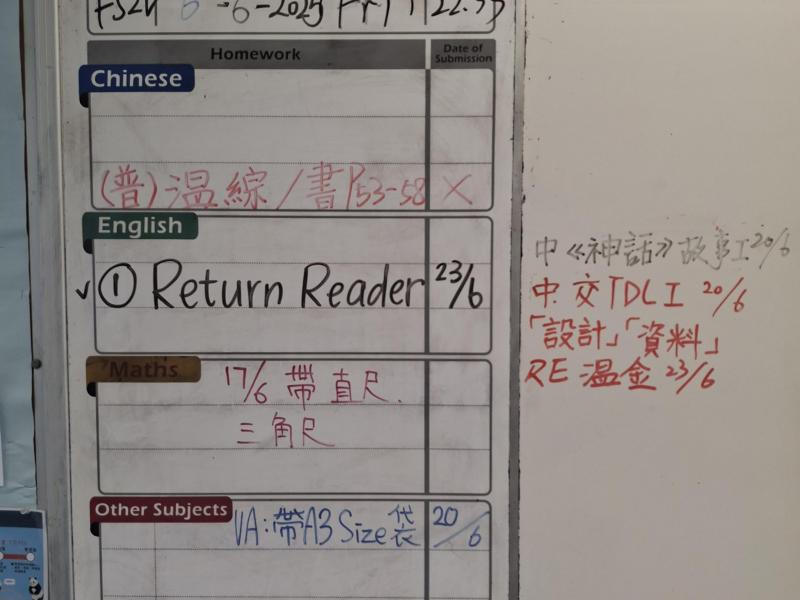 Homework
Date of
Submission
Chinese
(普)温綜/書P53-58 X
English
✓① Return Reader 23/6
Maths
17/6 帶直尺.
三角尺
Other Subjects
VA:帶A3 Size袋 20/6
中《神話》故事工20/6
中交TDLI 20/6
「設計」「資料」
RE 温金 23/6